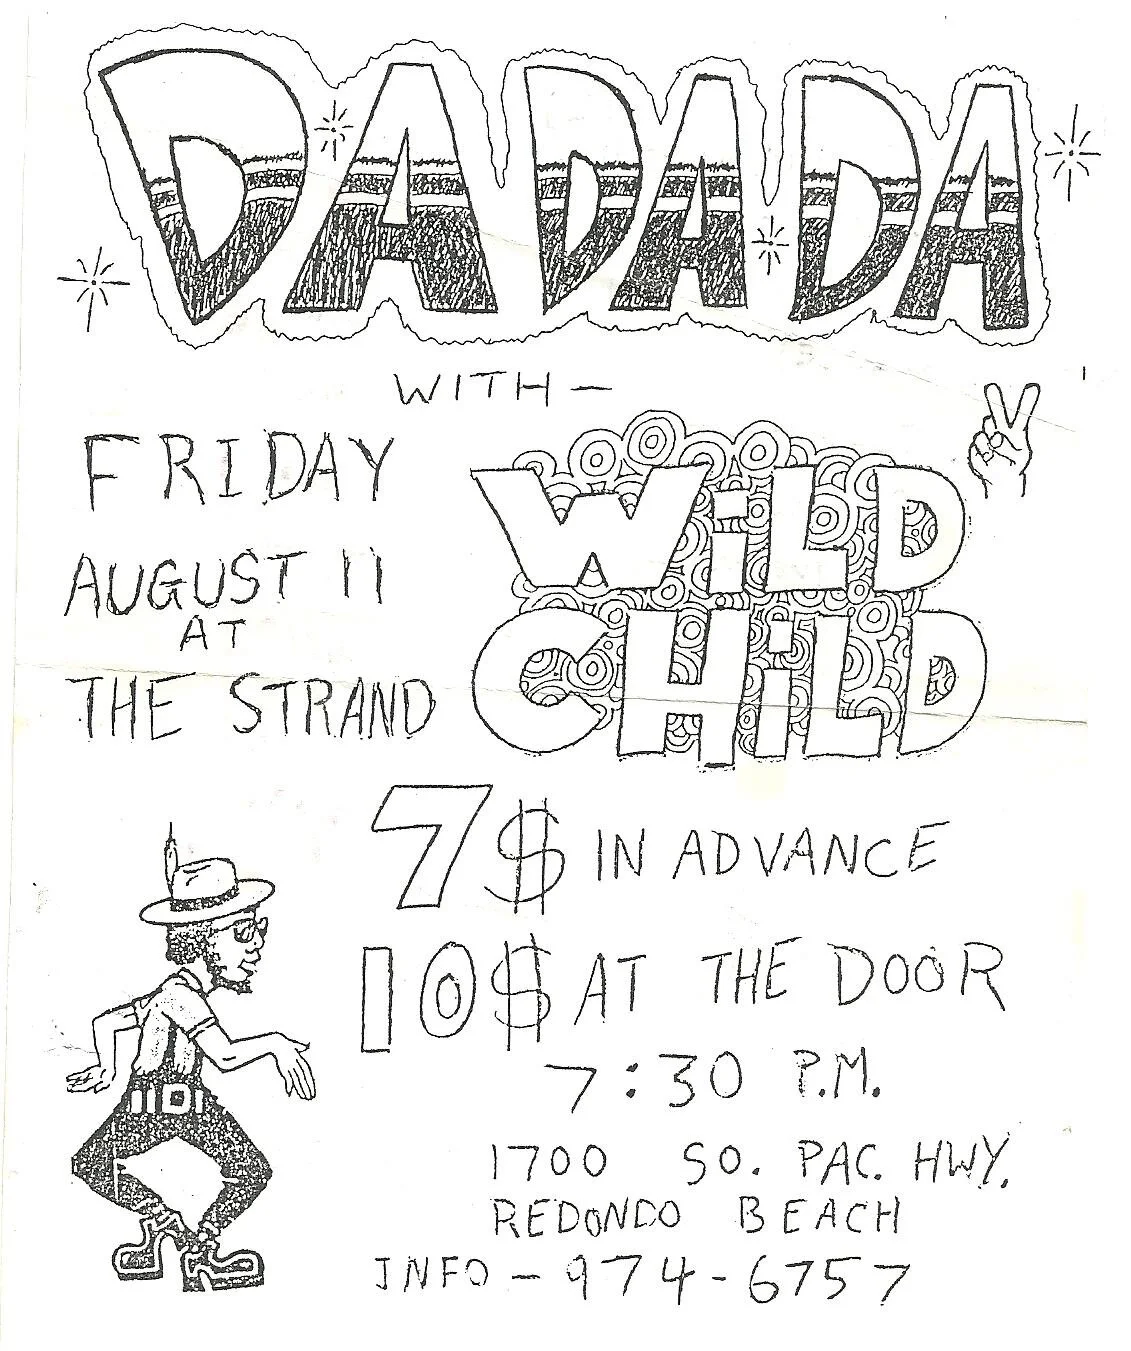 DADADA
WITH-
FRIDAY
AUGUST 11
AT
THE STRAND
WiLD
CHiLD
7$ IN ADVANCE
10$ AT THE DOOR
7:30 P.M.
1700 SO. PAC. HWY.
REDONDO BEACH
INFO - 974-6757